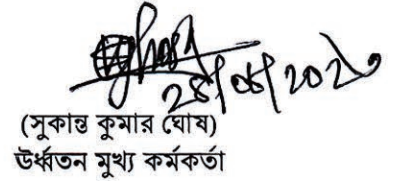 28/06/2020
(সুকান্ত কুমার ঘোষ)
ঊর্ধ্বতন মুখ্য কর্মকর্তা